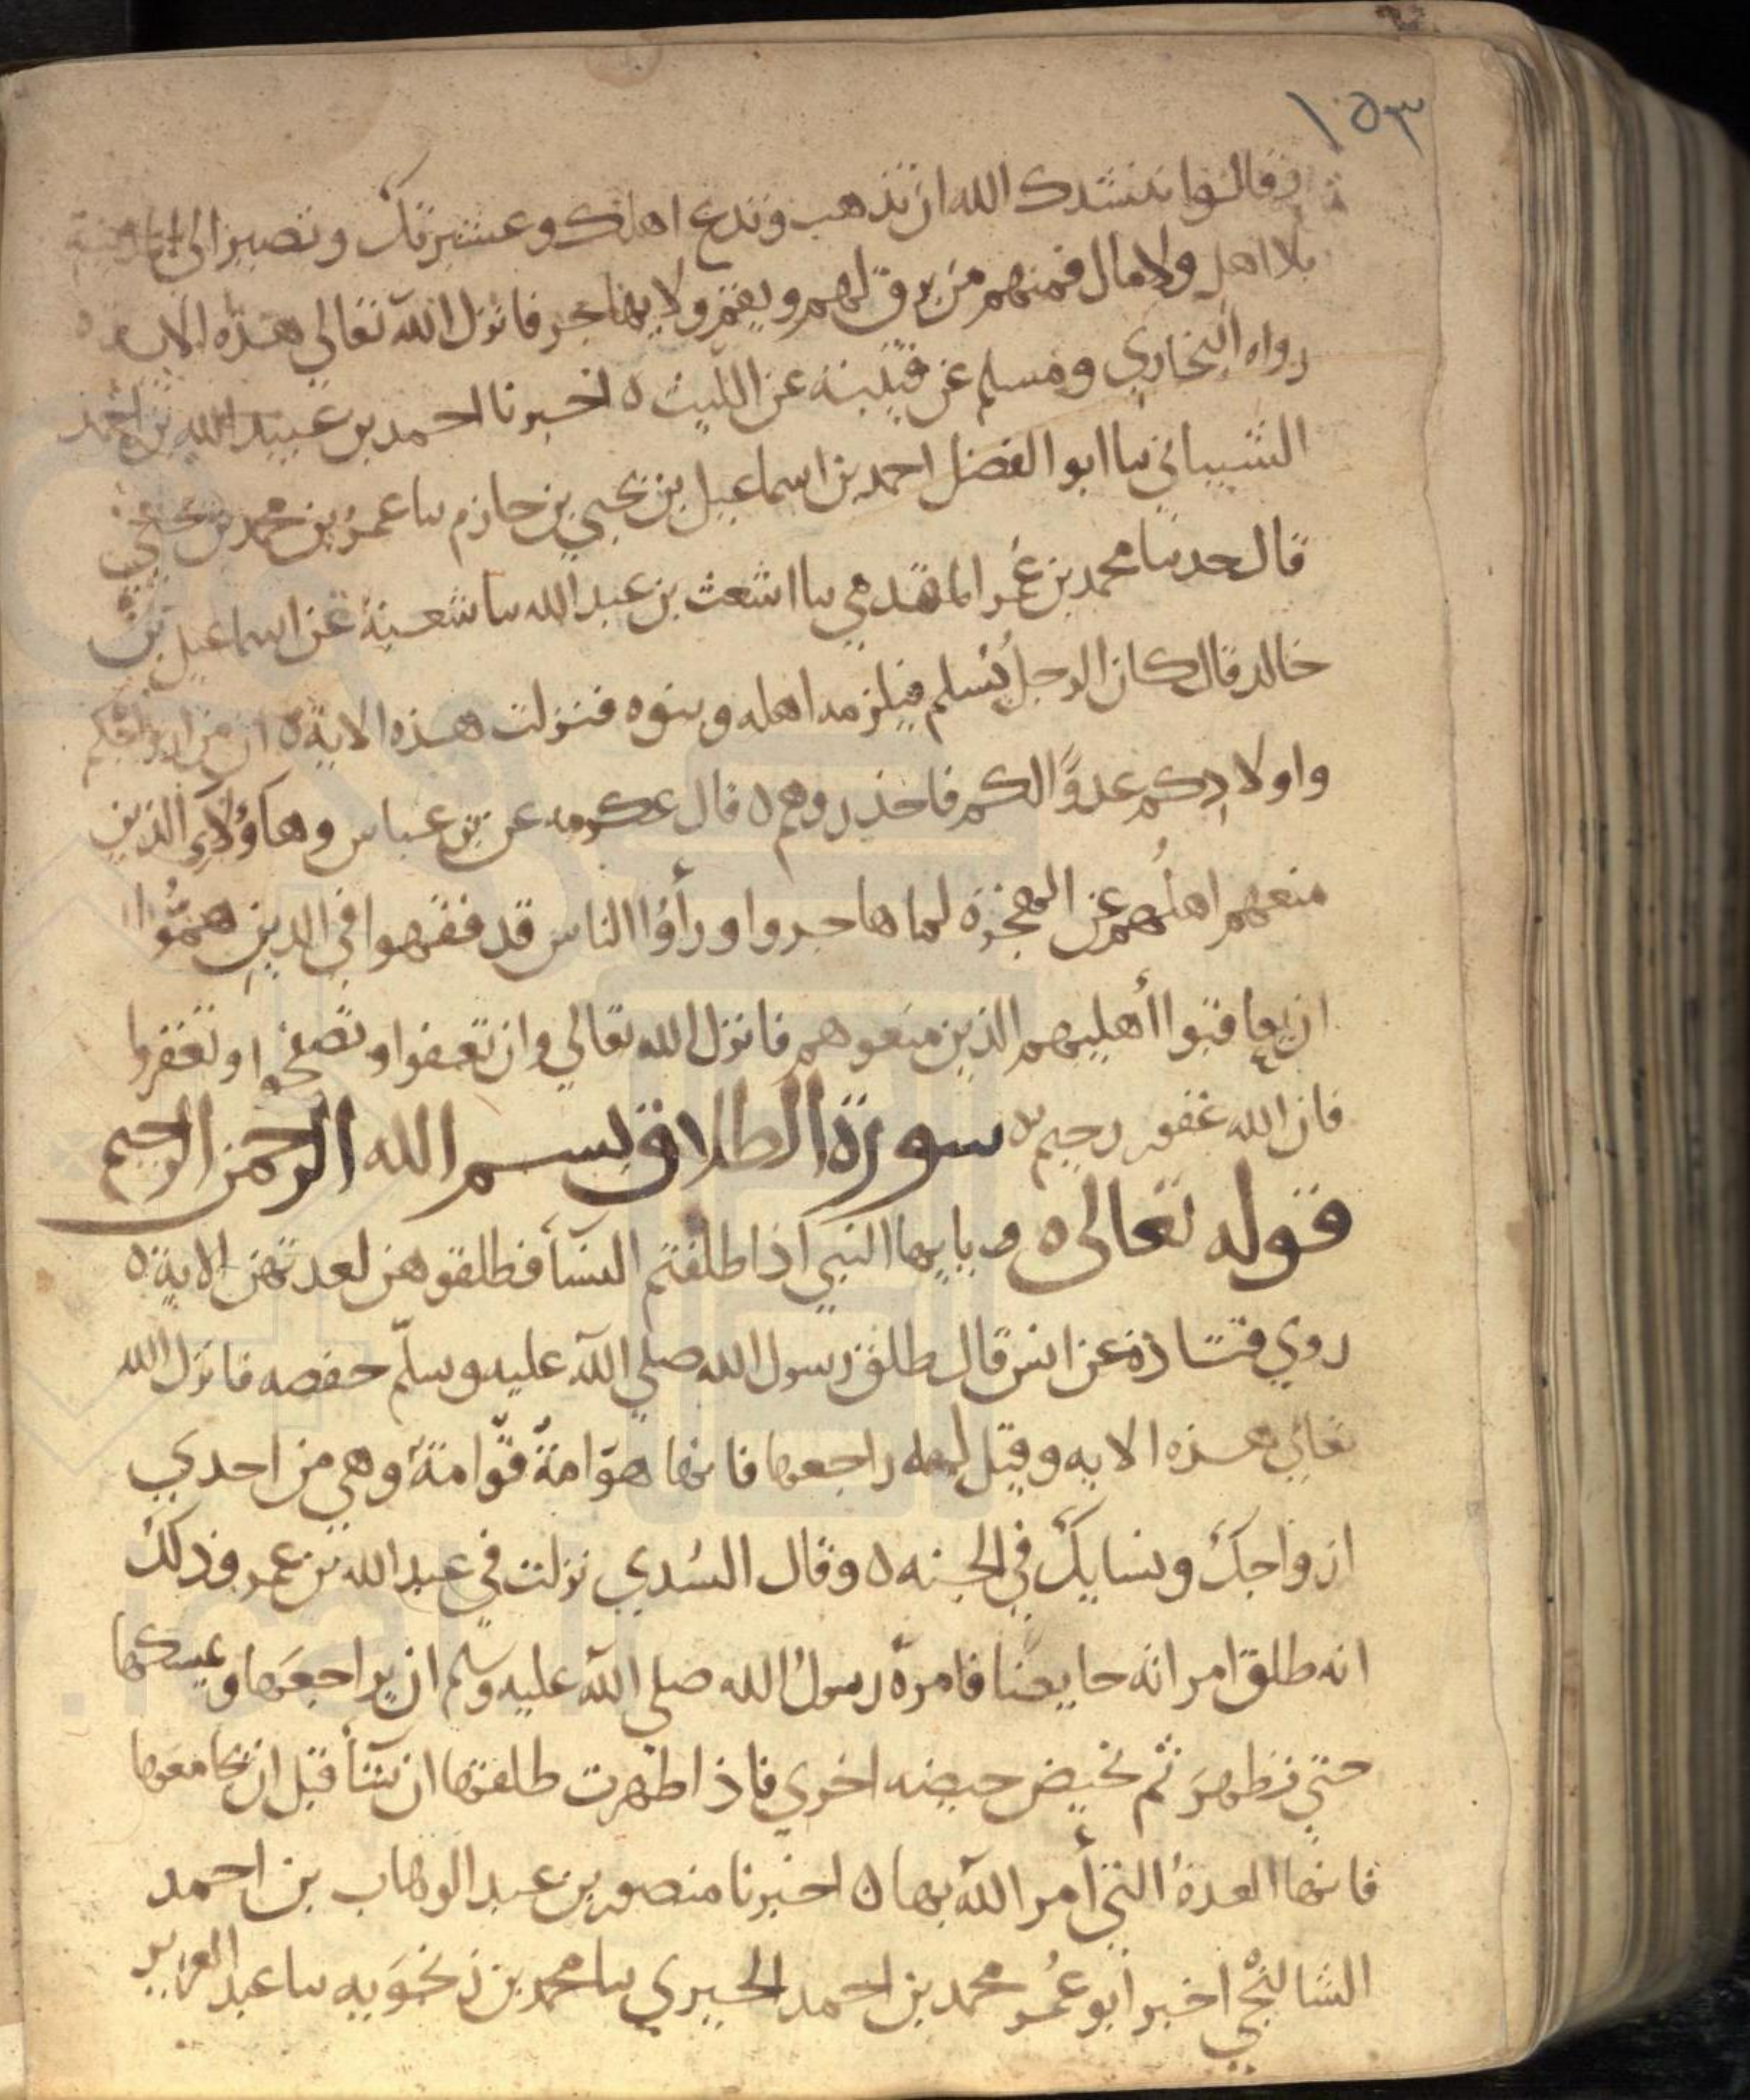 ١٥٣
وقالوا ننشدك الله ان تذهب وتدع اهلك وعشيرتك وتصير الى المدينة
بلا اهل ولا مال فمنهم من يرق لهم ويقيم ولا يهاجر فانزل الله تعالى هذه الايه
رواه البخاري ومسلم عن قتيبة عن الليث ه اخبرنا احمد بن عبيد الله بن احمد
الشيباني سا ابو الفضل احمد بن اسماعيل بن يحيى بن حازم سا عمر بن محمد بن يحيى
قال حدسا محمد بن عمر المقدمي سا اشعث بن عبد الله سا شعبة عن اسماعيل بن
خالد قال كان الرجل يسلم فيلزمه اهله وبنوه فنزلت هذه الاية ه ان من ازواجكم
واولادكم عدوًّا لكم فاحذروهم ه قال عكرمه عن بن عباس وهاؤلاى الذين
منعهم اهلُهم عن الهجرة لما هاجروا ورأوا الناس قد فقهوا في الدين همُّوا
ان يعاقبوا أهليهم الذين منعوهم فانزل الله تعالي وان تعفوا وتصفحوا وتغفروا
فان الله غفور رحيم ه سورة الطلاق بسم الله الرحمن الرحيم
قوله تعالى ه يايها النبي اذا طلقتم النسأ فطلقوهن لعدتهن الاية ه
روي قتادة عن انس قال طلق رسول الله صلي الله عليه وسلّم حفصه فانزل الله
تعالي هذه الايه وقيل له راجعها فانها صوّامةٌ قوّامةٌ وهي من احدي
ازواجك ونسايك في الجنه ه وقال السُدي نزلت في عبد الله بن عمر وذلك
انه طلق امراته حايضا فامره رسول الله صلي الله عليه وسلم ان يراجعَها ويمسكها
حتي تطهرَ ثم تحيض حيضه اخري فاذا طهرت طلقها ان شأ قبل ان يجامعها
فانها العدةُ التي أمر الله بها ه اخبرنا منصور بن عبد الوهاب بن احمد
الشالنجي اخبر ابو عُمر محمد بن احمد الحيري سا محمد بن زنجَويه سا عبد العزيز